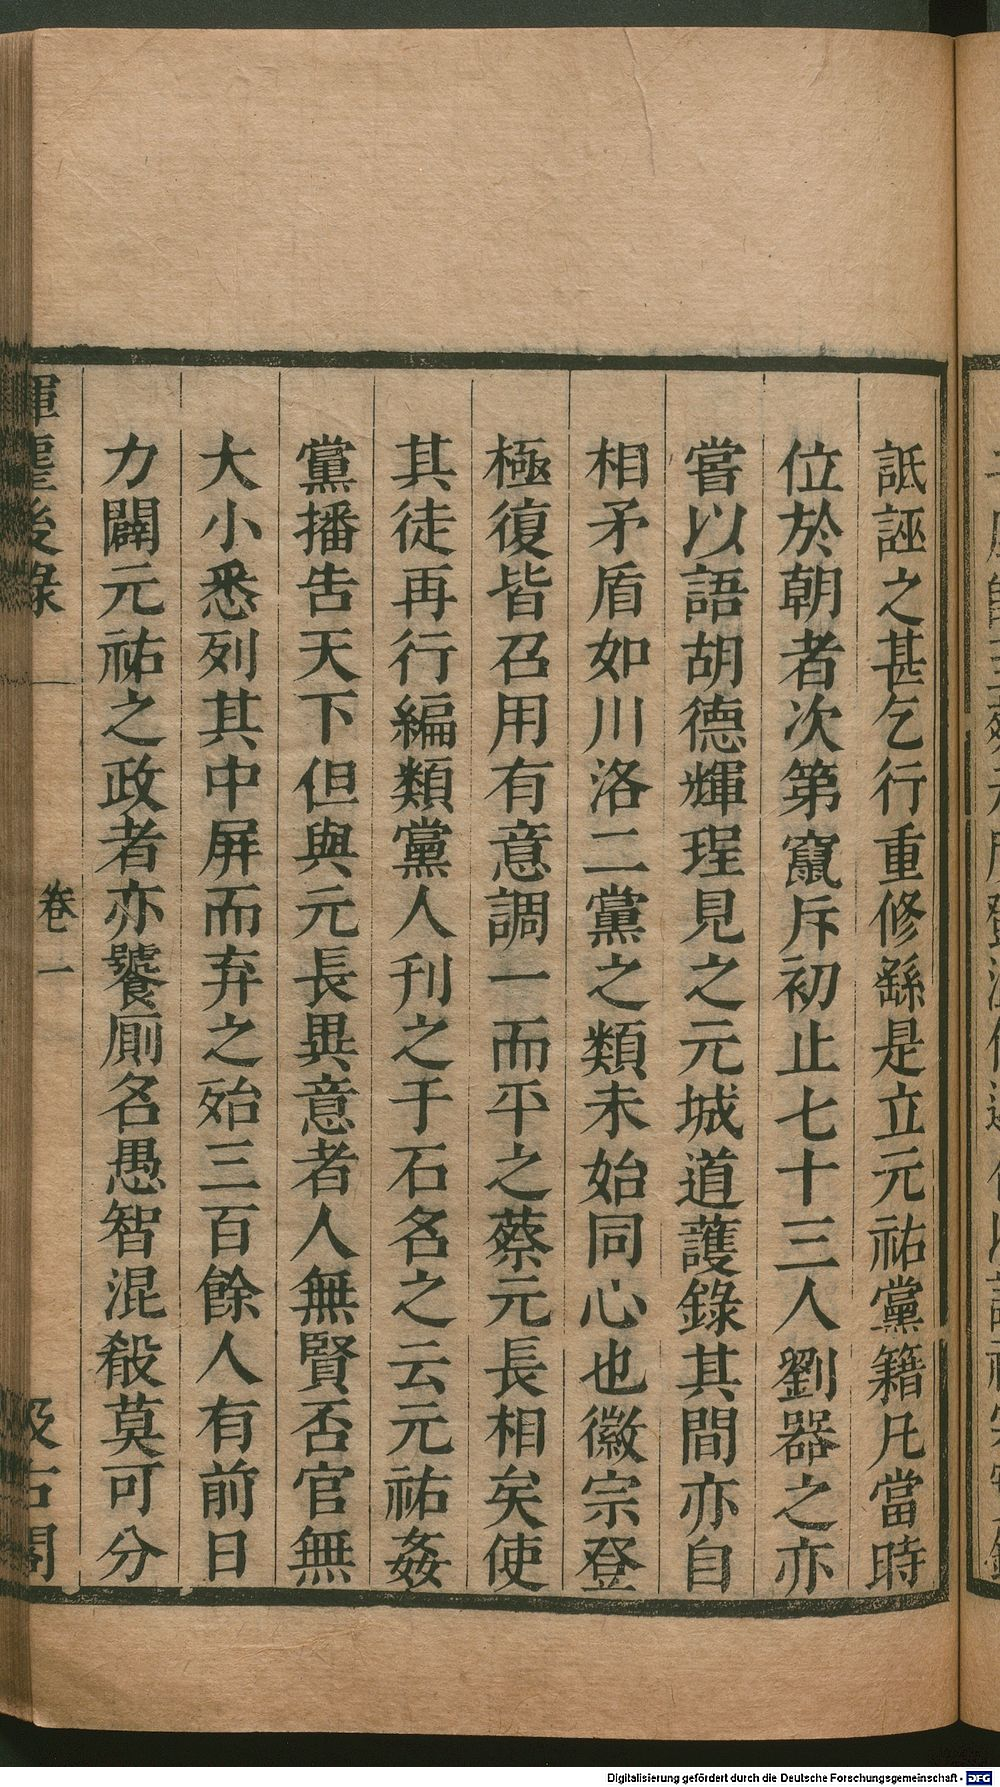 詆誣之甚乞行重修繇是立元祐黨籍凡當時
位於朝者次第竄斥初止七十三人劉器之亦
嘗以語胡德輝珵見之元城道護錄其間亦自
相矛盾如川洛二黨之類未始同心也徽宗登
極復皆召用有意調一而平之蔡元長相矣使
其徒再行編類黨人刊之于石名之云元祐姦
黨播告天下但與元長異意者人無賢否官無
大小悉列其中屏而弃之殆三百餘人有前日
力闢元祐之政者亦饕厠名愚智混殽莫可分
揮麈後錄
卷一
汲古閣
Digitalisierung gefördert durch die Deutsche Forschungsgemeinschaft - DFG